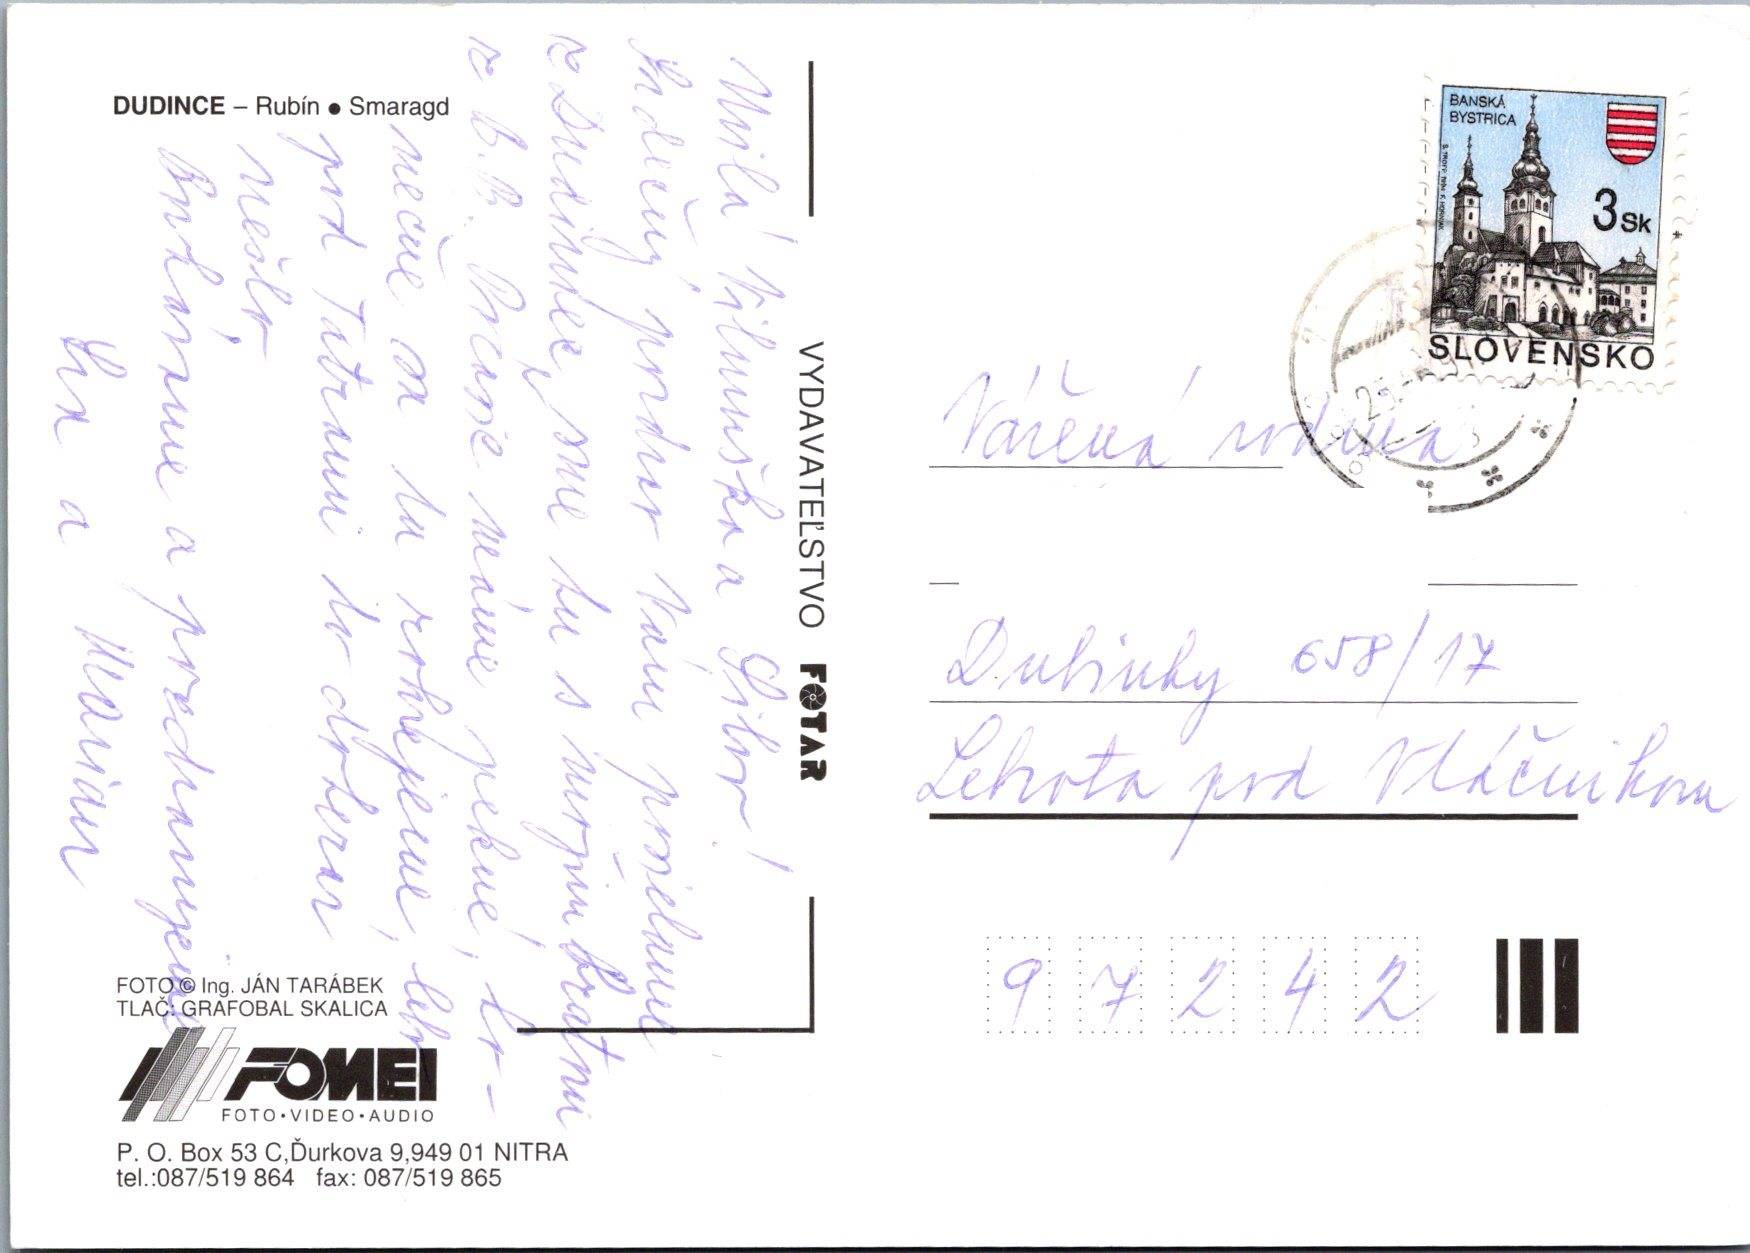 DUDINCE – Rubín ● Smaragd
Milá Vilmuška a Libor!
Srdečný pozdrav Vám posielame
z Dudiniec, sme tu s mojim bratom
z B.B. Počasie máme pekné, ko-
nečne sa tu rozhýjeme, lebo
pod Tatrami to doteraz
nešlo.
Bozkávame a pozdravujeme
a Marián
VYDAVATEĽSTVO FOTAR
FOTO © Ing. JÁN TARÁBEK
TLAČ: GRAFOBAL SKALICA
FOMEI
FOTO•VIDEO•AUDIO
P. O. Box 53 C,Ďurkova 9,949 01 NITRA
tel.:087/519 864 fax: 087/519 865
BANSKÁ
BYSTRICA
3 Sk
SLOVENSKO
Vážená rodina
Dubinky 658/17
Lehota pod Vtáčnikom
97242